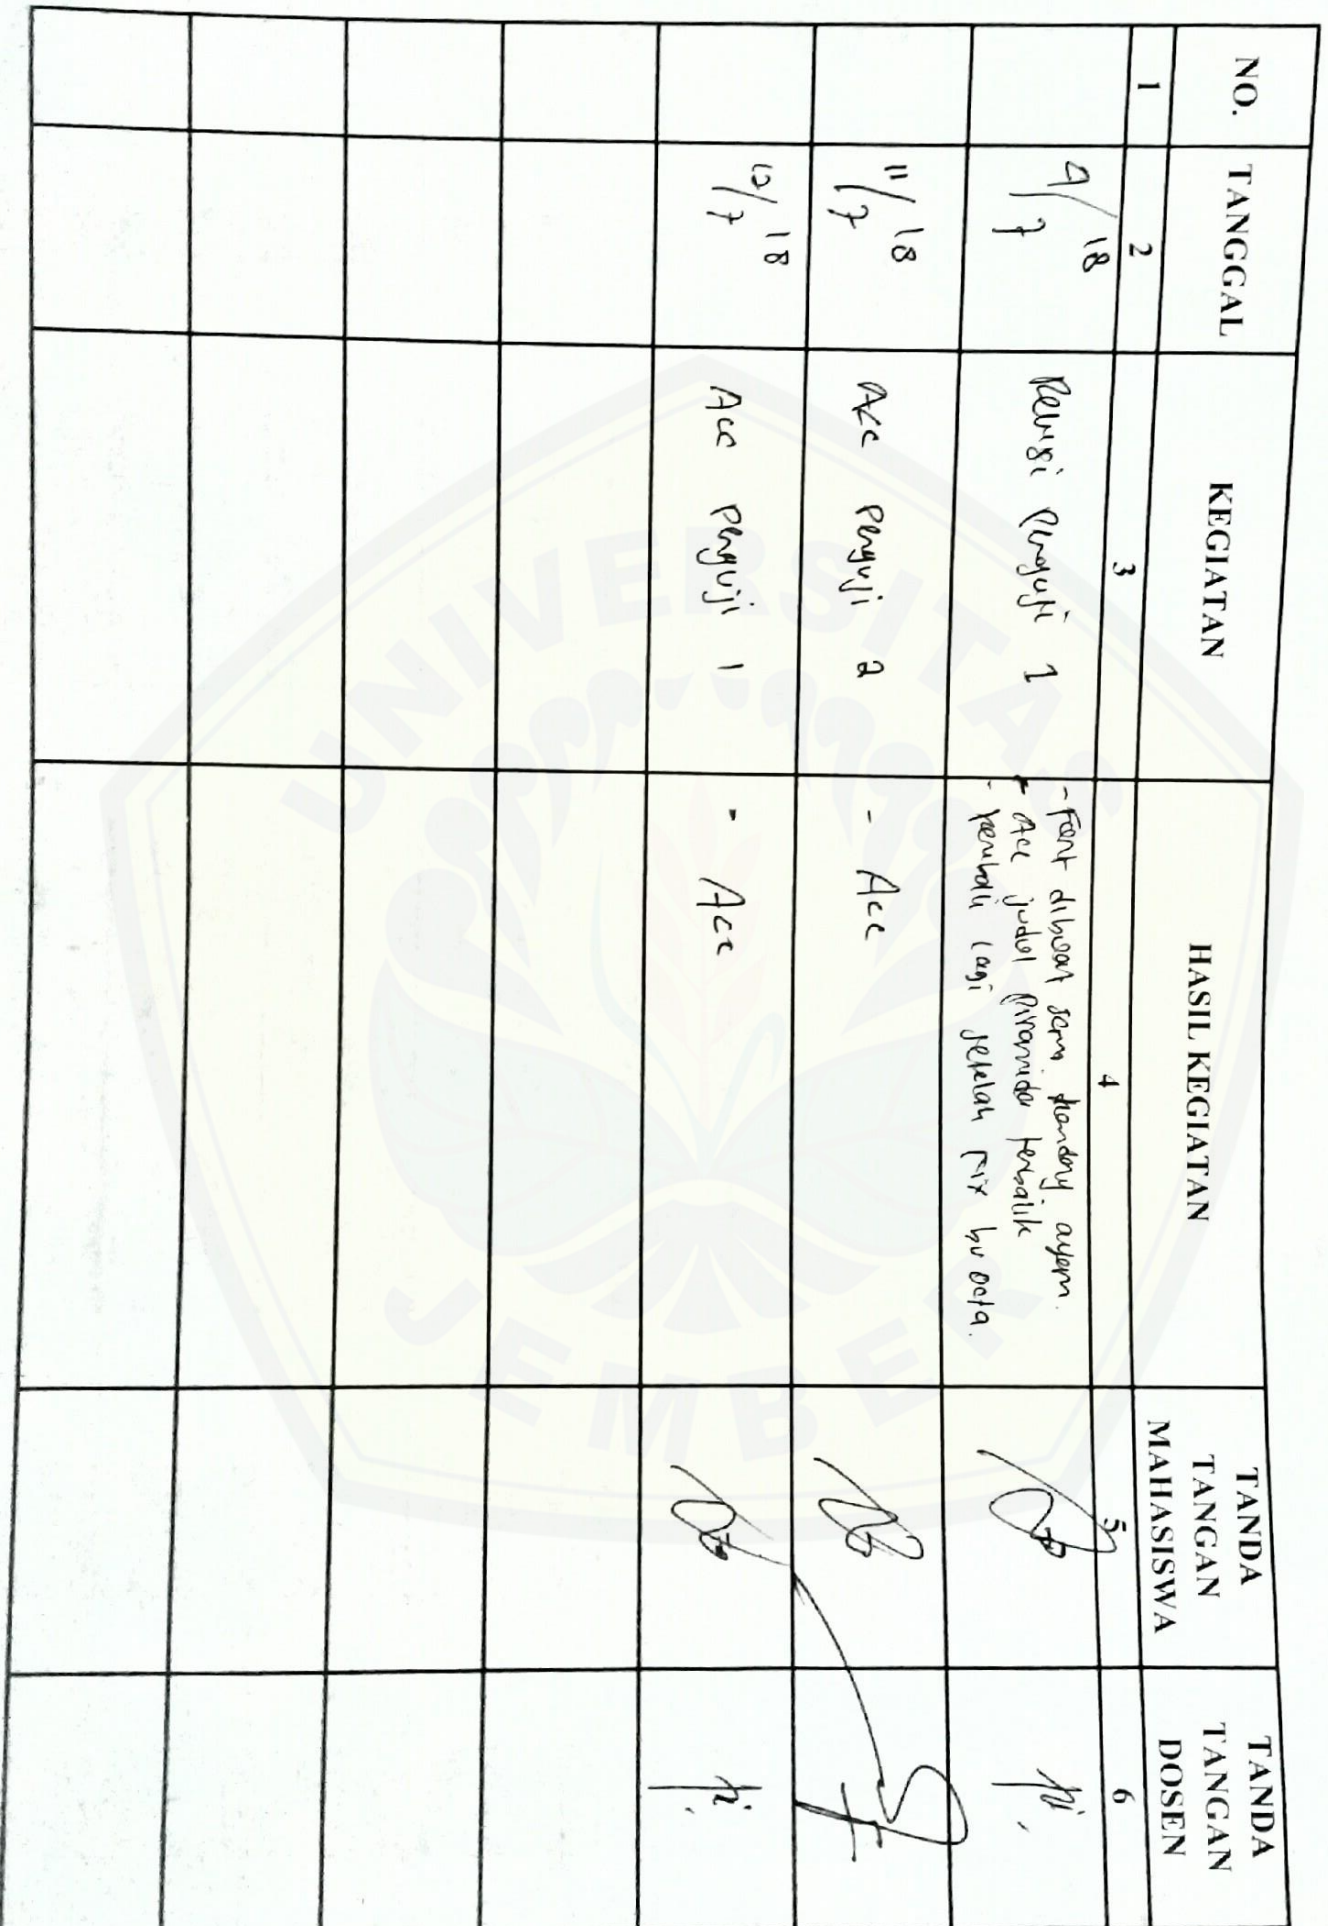 NO.
TANGGAL
KEGIATAN
HASIL KEGIATAN
TANDA
TANGAN
MAHASISWA
TANDA
TANGAN
DOSEN
1
2
3
4
5
6
18
7
Revisi Penguji 1
- Font dibuat sama. kandang ayam.
- Acc judul piramida terbalik
- kembali lagi setelah fix bu octa.
11/7 18
Acc Penguji 2
- Acc
12/7 18
Acc Penguji 1
- Acc
UNIVERSITAS
JEMBER